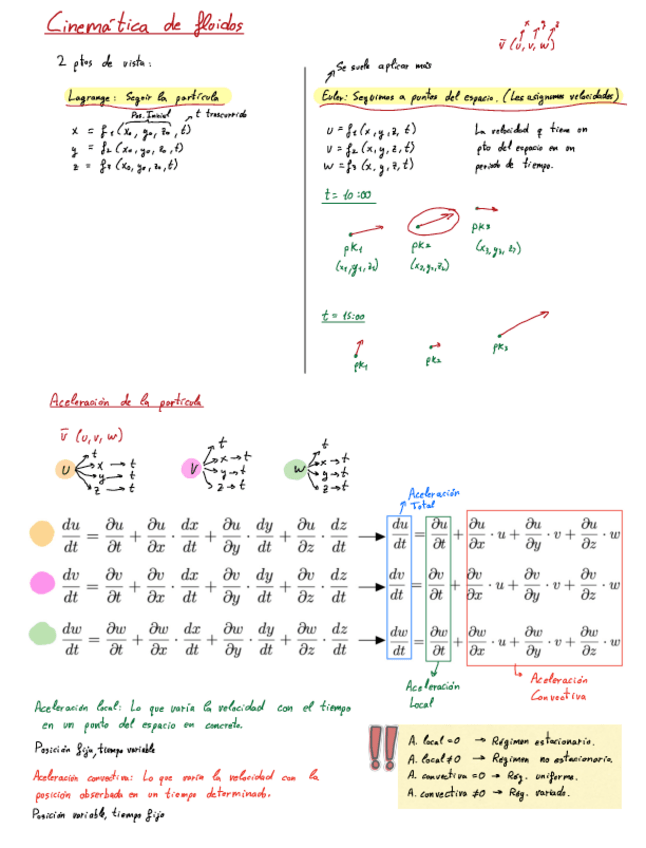 Cinemática de fluidos
x y z
v̄ (u, v, w)
2 ptos de vista:
Se suele aplicar más
Lagrange: Seguir la partícula
Euler: Seguimos a puntos del espacio. (Les asignamos velocidades)
Pos. Inicial
t trascurrido
x = f₁ (x₀, y₀, z₀, t)
y = f₂ (x₀, y₀, z₀, t)
z = f₃ (x₀, y₀, z₀, t)
u = f₁ (x, y, z, t)
v = f₂ (x, y, z, t)
w = f₃ (x, y, z, t)
La velocidad q tiene un
pto del espacio en un
periodo de tiempo.
t = 10:00
pk₁
pk₂
pk₃
(x₁, y₁, z₁)
(x₂, y₂, z₂)
(x₃, y₃, z₃)
t = 15:00
pk₁
pk₂
pk₃
Aceleración de la partícula
v̄ (u, v, w)
u
t
x → t
y → t
z → t
v
t
x → t
y → t
z → t
w
t
x → t
y → t
z → t
Aceleración
Total
du/dt = ∂u/∂t + ∂u/∂x · dx/dt + ∂u/∂y · dy/dt + ∂u/∂z · dz/dt → du/dt = ∂u/∂t + ∂u/∂x · u + ∂u/∂y · v + ∂u/∂z · w
dv/dt = ∂v/∂t + ∂v/∂x · dx/dt + ∂v/∂y · dy/dt + ∂v/∂z · dz/dt → dv/dt = ∂v/∂t + ∂v/∂x · u + ∂v/∂y · v + ∂v/∂z · w
dw/dt = ∂w/∂t + ∂w/∂x · dx/dt + ∂w/∂y · dy/dt + ∂w/∂z · dz/dt → dw/dt = ∂w/∂t + ∂w/∂x · u + ∂w/∂y · v + ∂w/∂z · w
Aceleración
Local
Aceleración
Convectiva
Aceleración local: Lo que varía la velocidad con el tiempo
en un punto del espacio en concreto.
Posición fija, tiempo variable
Aceleración convectiva: Lo que varía la velocidad con la
posición obserbada en un tiempo determinado.
Posición variable, tiempo fijo
!!
A. local = 0 → Régimen estacionario.
A. local ≠ 0 → Régimen no estacionario.
A. convectiva = 0 → Rég. uniforme.
A. convectiva ≠ 0 → Rég. variado.